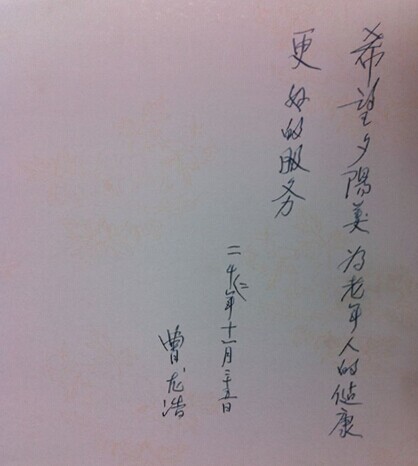 希望夕陽美为老年人的健康
更好的服务
年十一月二十五日
曹龙浩